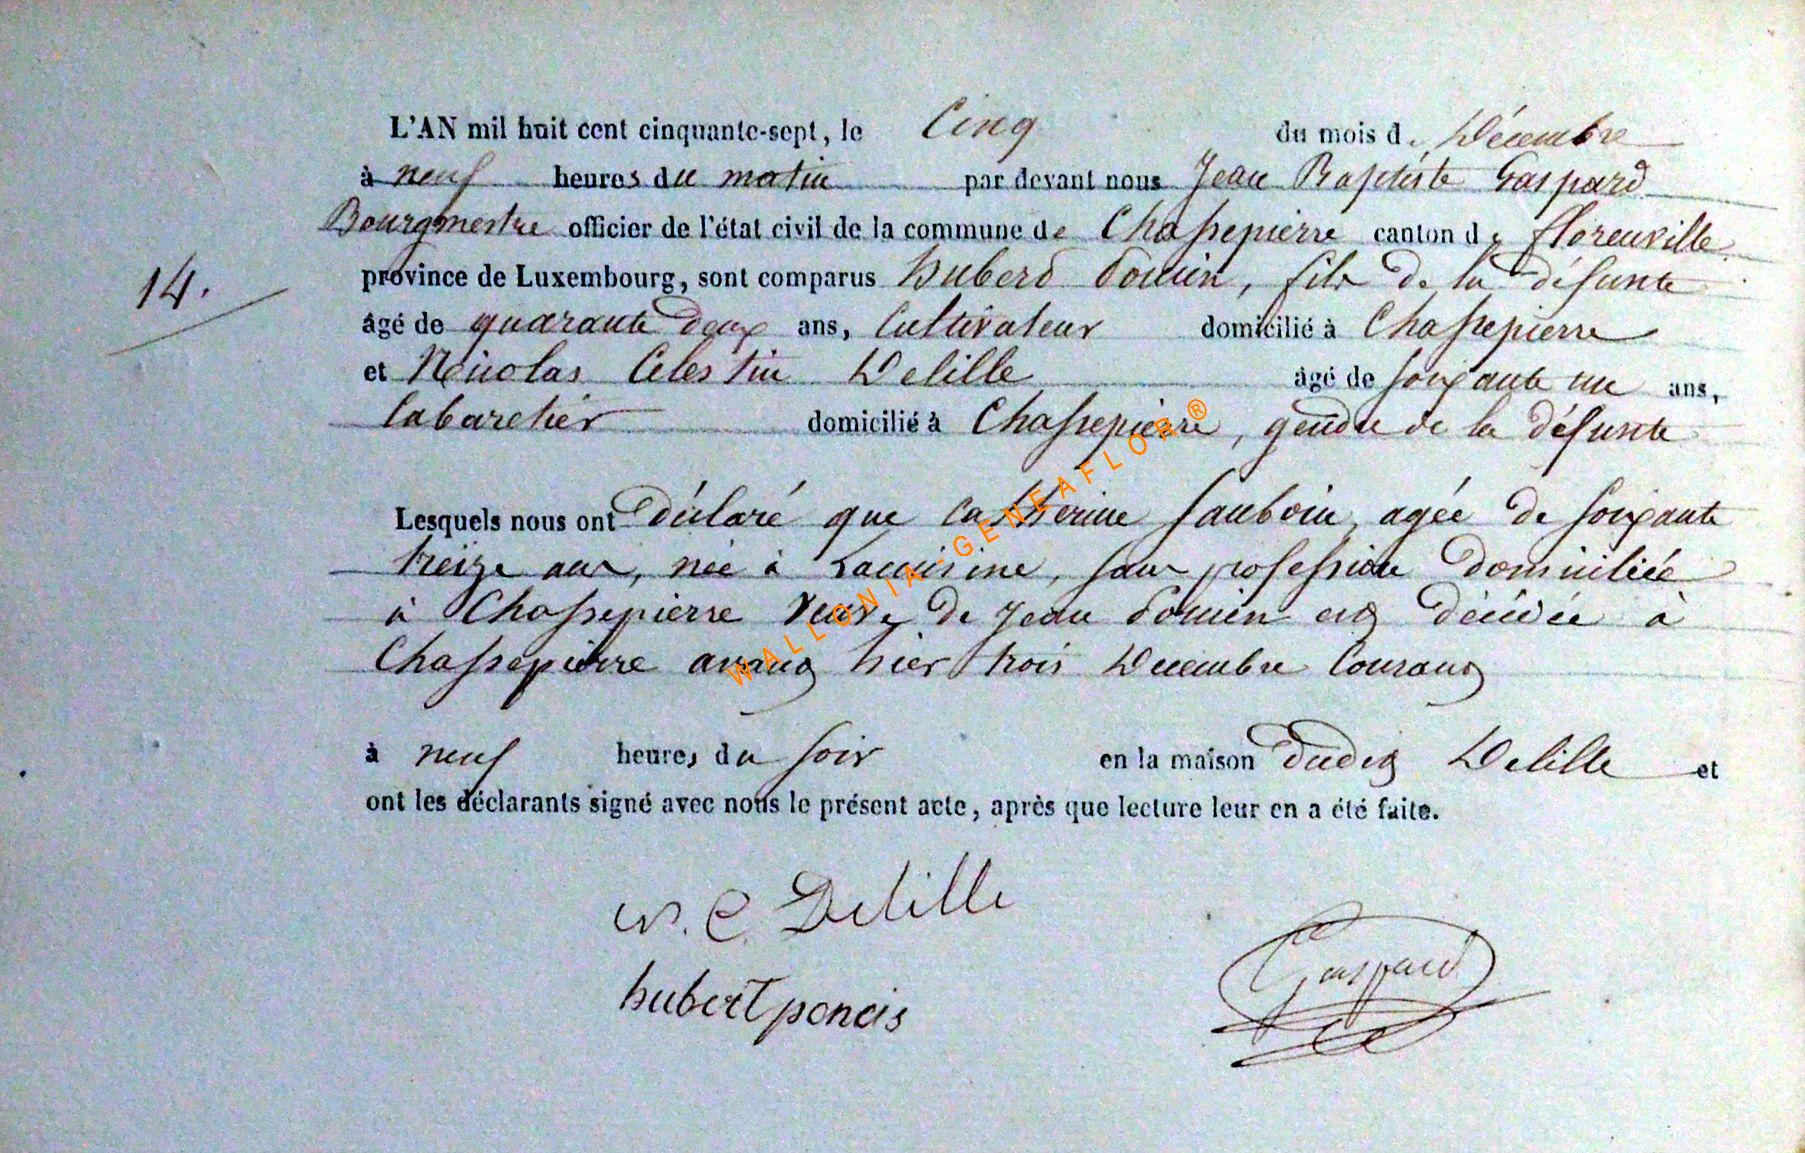 L'AN mil huit cent cinquante-sept, le Cinq du mois de Décembre
à neuf heures du matin par devant nous Jean Baptiste Gaspard
Bourgmestre officier de l'état civil de la commune de Chassepierre canton de florenville
14.
province de Luxembourg, sont comparus hubert Poncin, fils de la défunte
âgé de quarante deux ans, Cultivateur domicilié à Chassepierre
et Nicolas Celestin Delille âgé de soixante un ans,
Cabaretier domicilié à Chassepierre, gendre de la défunte
Lesquels nous ont déclaré que Catherine Jauboin, agée de soixante
treize ans, née à Lacuisine, sans profession domiciliée
à Chassepierre veuve de Jean Poncin est décédée à
Chassepierre avant hier trois Decembre Courant
à neuf heures du soir en la maison dudit Delille et
ont les déclarants signé avec nous le présent acte, après que lecture leur en a été faite.
N. C. Delille
hubert poncis
Gaspard
WALLONIA-GENEAFLOR®